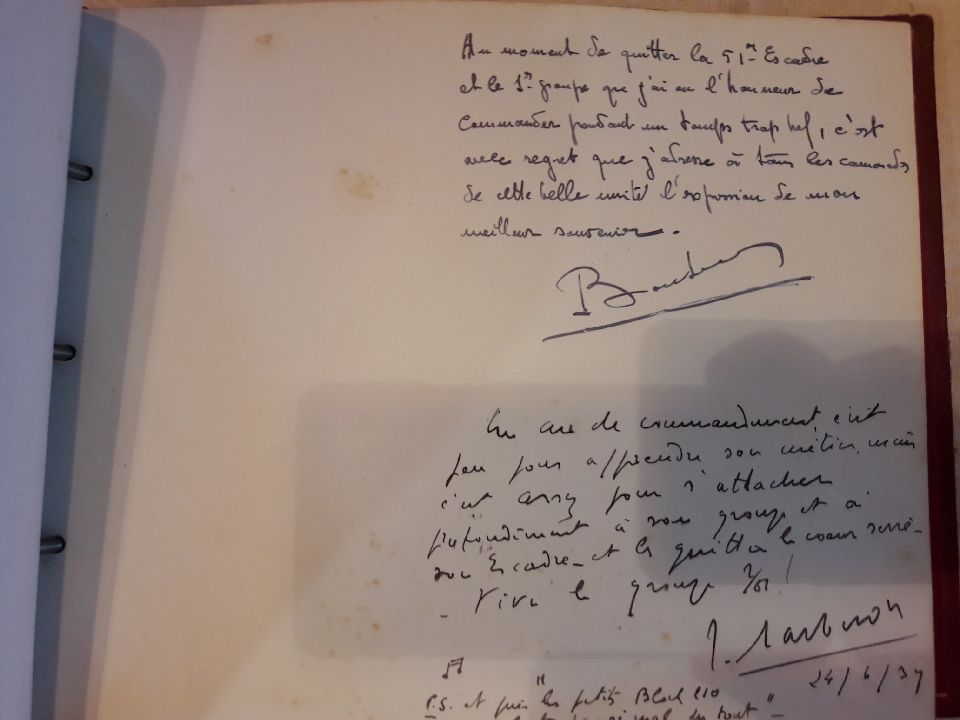 Au moment de quitter la 51e Escadre
et le 1er groupe que j'ai eu l'honneur de
commander pendant un temps trop bref, c'est
avec regret que j'adresse à tous les camarades
de cette belle unité l'expression de mon
meilleur souvenir.
Un an de commandement, c'est
peu pour apprendre son métier, mais
c'est assez pour s'attacher
profondément à son groupe et à
son Escadre - et les quitter le coeur serré -
- Vive le groupe 2/51!
24/6/37
P.S. et puis "les petits Bloch 210
du tout" -